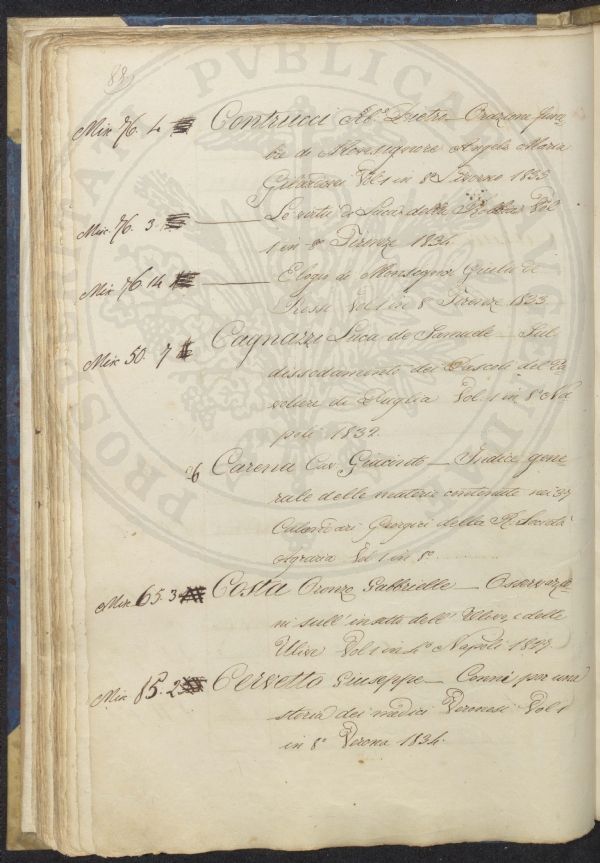 88
Mix 76. 4 Contrucci Ab.e Pietro — Orazione fune=
bre di Monsignore Angelo Maria
Vol 1 in 8° Livorno 1833
Mix 76. 3 — Le virtù di Luca della Robbia Vol
1 in 8° Firenze 1834
Mix 76. 14 — Elogio di Monsignor Giulio de
Rossi Vol 1 in 8° Firenze 1833
Mix 50. 7 Cagnazzi Luca de Samuele — Sul
dissodamento dei Pascoli del Ta
voliere di Puglia Vol. 1 in 8° Na
poli 1832.
Carena Cav. Giacinto — Indice gene=
rale delle materie contenute nei 37
Calendari Georgici della R. Società
Agraria Vol 1 in 8°
Mix 65. 3 Costa Oronzo Gabbrielle — Osservazio
ni sull' insetti dell' Ulivo, e delle
Ulive Vol 1 in 4° Napoli 1827
Mix 85. 2 Cervetto Giuseppe — Cenni per una
storia dei medici Veronesi Vol 1
in 8° Verona 1834.
PUBLICAM
PROSPERITATI